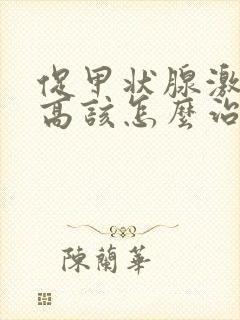 促甲状腺激
高该怎麼治
陳蘭華